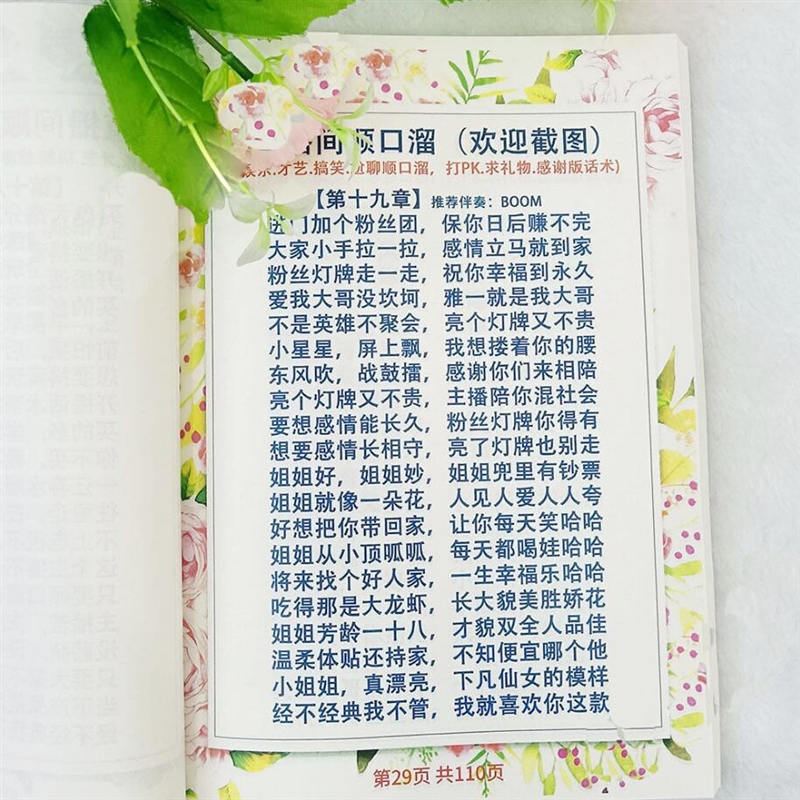 间顺口溜（欢迎截图）
乐.才艺.搞笑.尬聊顺口溜，打PK.求礼物.感谢版话术)
【第十九章】推荐伴奏：BOOM
进门加个粉丝团，保你日后赚不完
大家小手拉一拉，感情立马就到家
粉丝灯牌走一走，祝你幸福到永久
爱我大哥没坎坷，雅一就是我大哥
不是英雄不聚会，亮个灯牌又不贵
小星星，屏上飘，我想搂着你的腰
东风吹，战鼓擂，感谢你们来相陪
亮个灯牌又不贵，主播陪你混社会
要想感情能长久，粉丝灯牌你得有
想要感情长相守，亮了灯牌也别走
姐姐好，姐姐妙，姐姐兜里有钞票
姐姐就像一朵花，人见人爱人人夸
好想把你带回家，让你每天笑哈哈
姐姐从小顶呱呱，每天都喝娃哈哈
将来找个好人家，一生幸福乐哈哈
吃得那是大龙虾，长大貌美胜娇花
姐姐芳龄一十八，才貌双全人品佳
温柔体贴还持家，不知便宜哪个他
小姐姐，真漂亮，下凡仙女的模样
经不经典我不管，我就喜欢你这款
第29页 共110页